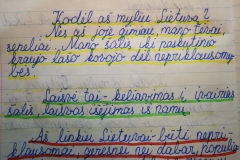 Kodėl aš myliu Lietuvą?
Nes aš joje gimiau, mano tėvai,
seneliai. Mano šalis iki paskutinio
kraujo lašo kovojo dėl nepriklausomy-
bės.
Laisvė tai - keliavimas į įvairias
šalis, laisvas išėjimas iš namų.
Aš linkiu Lietuvai - būti nepri-
klausomai, geresnei nei dabar,